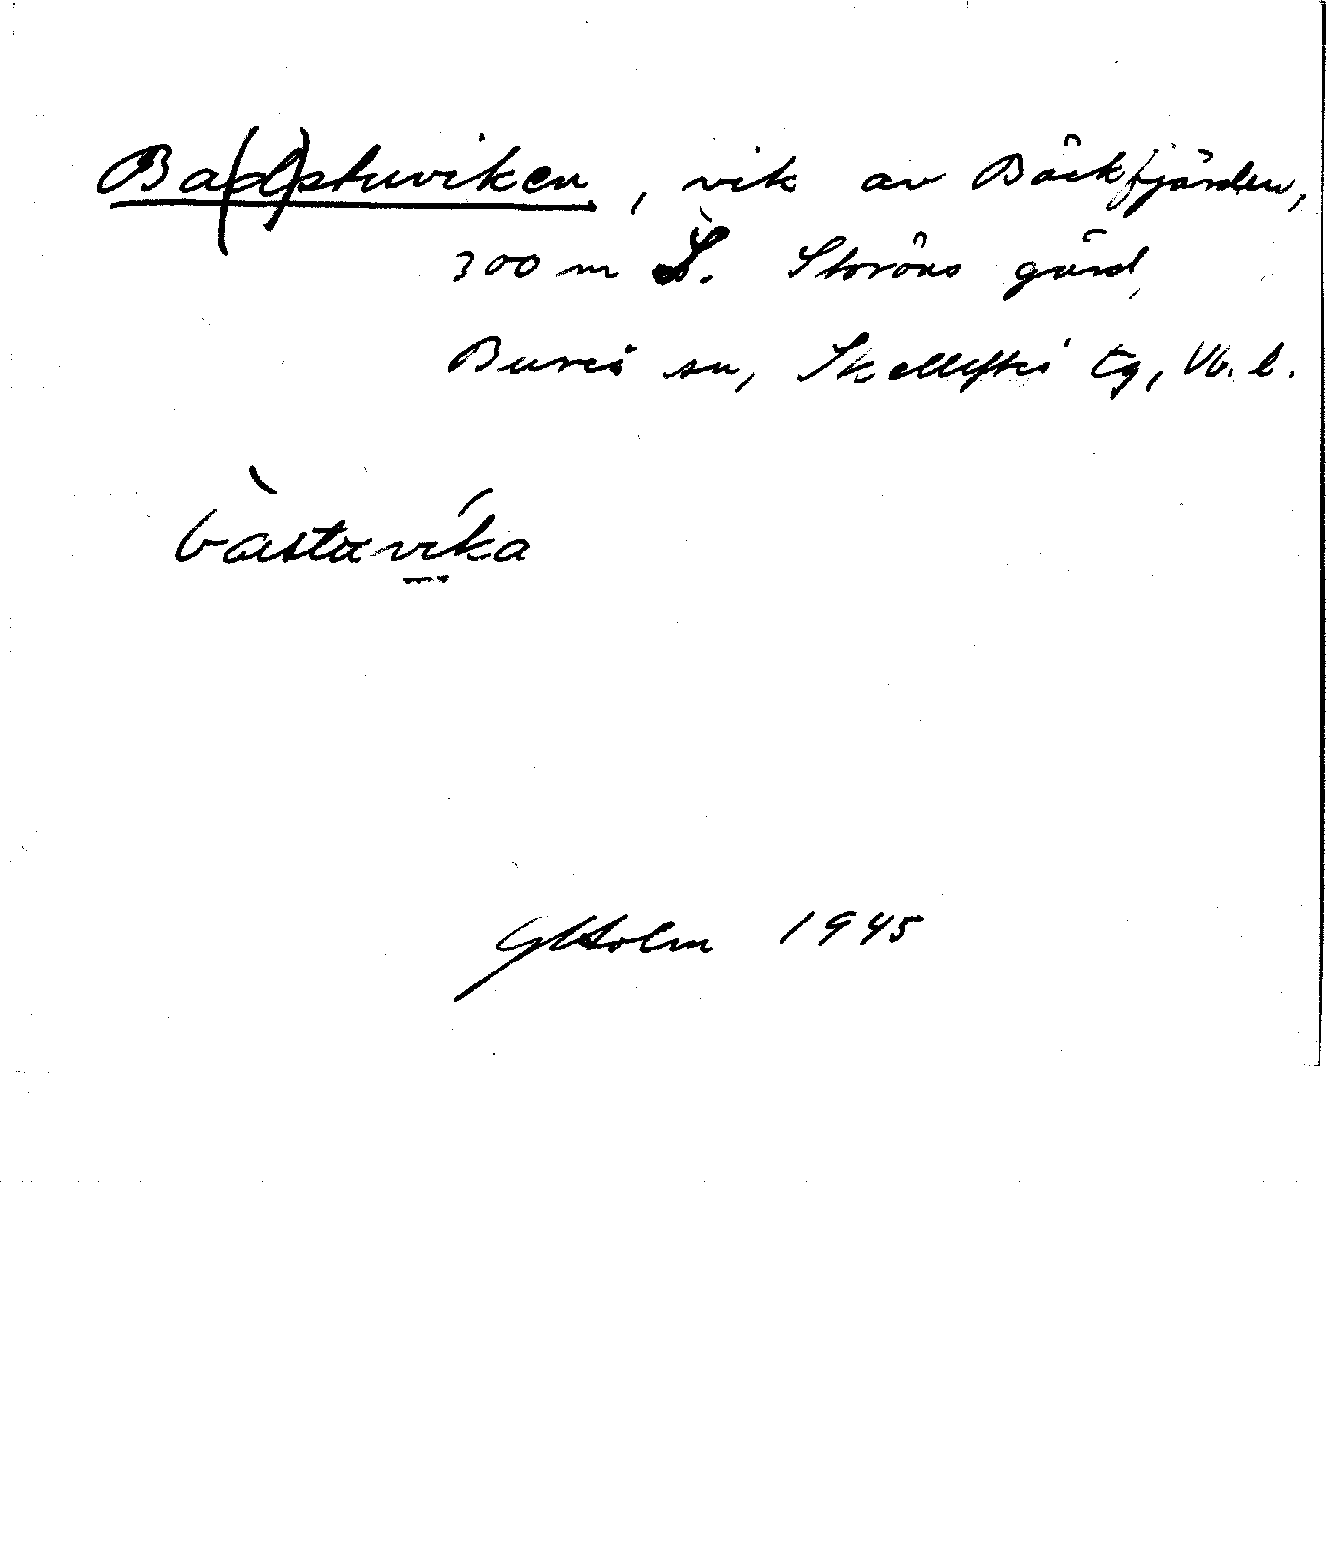 Ba(d)stuviken, vik av Bäckfjärden,
300 m S. Storöns gård,
Bureå sn, Skellefteå tg, Vb. l.
bàstuvíka
GHolm 1945